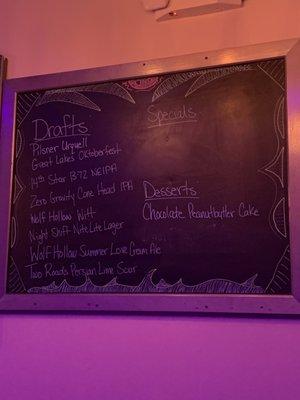 Drafts
Pilsner Urquell
Great Lakes Oktoberfest
14th Star B-72 NEIPA
Zero Gravity Cone Head IPA
Wolf Hollow Witt
Night Shift Nite Lite Lager
Wolf Hollow Summer Love Cream Ale
Two Roads Persian Lime Sour
Specials
Desserts
Chocolate Peanutbutter Cake